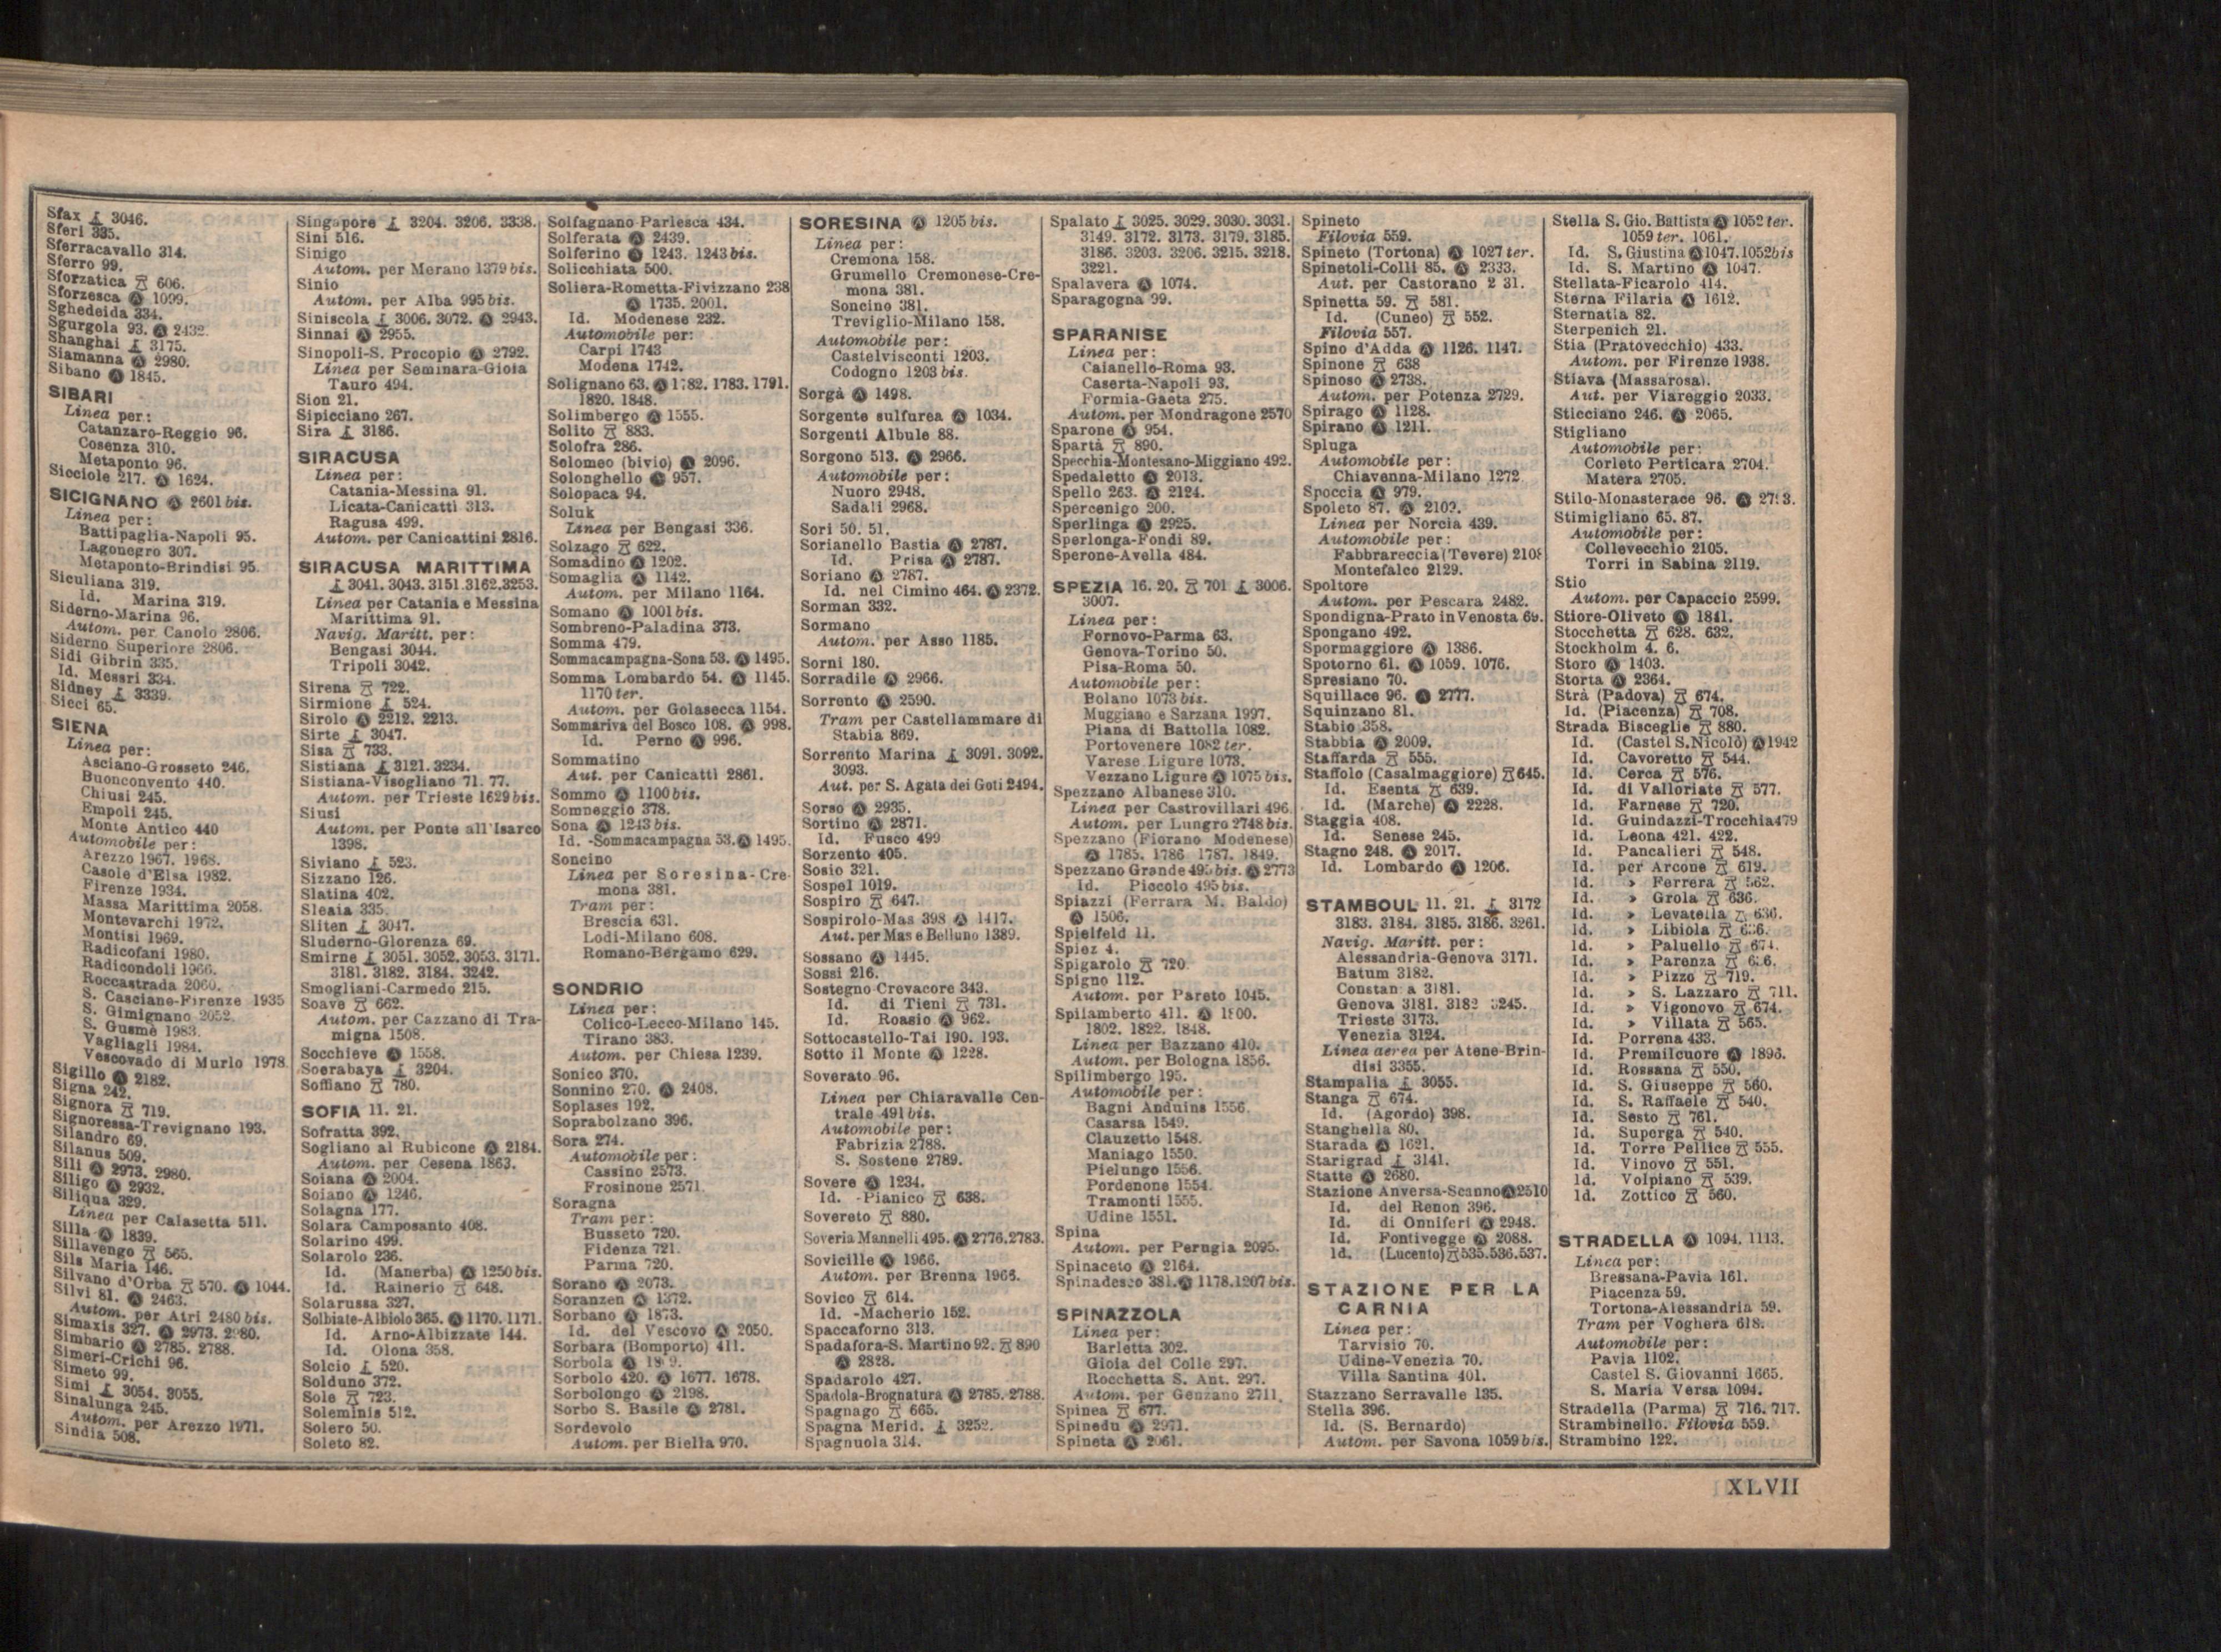 Sfax 3046.
Sferi 335.
Sferracavallo 314.
Sferro 99.
Sforzatica 606.
Sforzesca Ⓐ 1099.
Sghedeida 334.
Sgurgola 93. Ⓐ 2432.
Shanghai 3175.
Siamanna Ⓐ 2980.
Sibano Ⓐ 1845.
SIBARI
Linea per:
Catanzaro-Reggio 96.
Cosenza 310.
Metaponto 96.
Sicciole 217. Ⓐ 1624.
SICIGNANO Ⓐ 2601 bis.
Linea per:
Battipaglia-Napoli 95.
Lagonegro 307.
Metaponto-Brindisi 95.
Siculiana 319.
Id. Marina 319.
Siderno-Marina 96.
Autom. per Canolo 2806.
Siderno Superiore 2806.
Sidi Gibrin 335.
Id. Messri 334.
Sidney 3339.
Sieci 65.
SIENA
Linea per:
Asciano-Grosseto 246.
Buonconvento 440.
Chiusi 245.
Empoli 245.
Monte Antico 440
Automobile per:
Arezzo 1967. 1968.
Casole d'Elsa 1982.
Firenze 1934.
Massa Marittima 2058.
Montevarchi 1972.
Montisi 1969.
Radicofani 1980.
Radicondoli 1966.
Roccastrada 2060.
S. Casciane-Firenze 1935
S. Gimignano 2052.
S. Gusmè 1983.
Vagliagli 1984.
Vescovado di Murlo 1978
Sigillo Ⓐ 2182.
Signa 242.
Signora 719.
Signoressa-Trevignano 193.
Silandro 69.
Silanus 509.
Sili Ⓐ 2973. 2980.
Siligo Ⓐ 2932.
Siliqua 329.
Linea per Calasetta 511.
Silla Ⓐ 1839.
Sillavengo 565.
Sils Maria 146.
Silvano d'Orba 570. Ⓐ 1044.
Silvi 81. Ⓐ 2463.
Autom. per Atri 2480 bis.
Simaxis 327. Ⓐ 2973. 2980.
Simbario Ⓐ 2785. 2788.
Simeri-Crichi 96.
Simeto 99.
Simi 3054. 3055.
Sinalunga 245.
Autom. per Arezzo 1971.
Sindia 508.
Singapore 3204. 3206. 3338.
Sini 516.
Sinigo
Autom. per Merano 1379 bis.
Sinio
Autom. per Alba 995 bis.
Siniscola 3006. 3072. Ⓐ 2943.
Sinnai Ⓐ 2955.
Sinopoli-S. Procopio Ⓐ 2792.
Linea per Seminara-Gioia
Tauro 494.
Sion 21.
Sipicciano 267.
Sira 3186.
SIRACUSA
Linea per:
Catania-Messina 91.
Licata-Canicattì 313.
Ragusa 499.
Autom. per Canicattini 2816.
SIRACUSA MARITTIMA
3041. 3043. 3151. 3162. 3253.
Linea per Catania e Messina
Marittima 91.
Navig. Maritt. per:
Bengasi 3044.
Tripoli 3042.
Sirena 722.
Sirmione 524.
Sirolo Ⓐ 2212. 2213.
Sirte 3047.
Sisa 733.
Sistiana 3121. 3234.
Sistiana-Visogliano 71. 77.
Autom. per Trieste 1629 bis.
Siusi
Autom. per Ponte all'Isarco
1398.
Siviano 523.
Sizzano 126.
Slatina 402.
Sleaia 335.
Sliten 3047.
Sluderno-Glorenza 69.
Smirne 3051. 3052. 3053. 3171.
3181. 3182. 3184. 3242.
Smogliani-Carmedo 215.
Soave 662.
Autom. per Cazzano di Tra-
migna 1508.
Socchieve Ⓐ 1558.
Soerabaya 3204.
Soffiano 780.
SOFIA 11. 21.
Sofratta 392.
Sogliano al Rubicone Ⓐ 2184.
Autom. per Cesena 1863.
Soiana Ⓐ 2004.
Soiano Ⓐ 1246.
Solagna 177.
Solara Camposanto 408.
Solarino 499.
Solarolo 236.
Id. (Manerba) Ⓐ 1250 bis.
Id. Rainerio 648.
Solarussa 327.
Solbiate-Albiolo 365. Ⓐ 1170. 1171.
Id. Arno-Albizzate 144.
Id. Olona 358.
Solcio 520.
Solduno 372.
Sole 723.
Soleminis 512.
Solero 50.
Soleto 82.
Solfagnano-Parlesca 434.
Solferata Ⓐ 2439.
Solferino Ⓐ 1243. 1243 bis.
Solicchiata 500.
Soliera-Rometta-Fivizzano 238
Ⓐ 1735. 2001.
Id. Modenese 232.
Automobile per:
Carpi 1743
Modena 1742.
Solignano 63. Ⓐ 1782. 1783. 1791.
1820. 1848.
Solimbergo Ⓐ 1555.
Solito 883.
Solofra 286.
Solomeo (bivio) Ⓐ 2096.
Solonghello Ⓐ 957.
Solopaca 94.
Soluk
Linea per Bengasi 336.
Solzago 622.
Somadino Ⓐ 1202.
Somaglia Ⓐ 1142.
Autom. per Milano 1164.
Somano Ⓐ 1001 bis.
Sombreno-Paladina 373.
Somma 479.
Sommacampagna-Sona 53. Ⓐ 1495.
Somma Lombardo 54. Ⓐ 1145.
1170 ter.
Autom. per Golasecca 1154.
Sommariva del Bosco 108. Ⓐ 998.
Id. Perno Ⓐ 996.
Sommatino
Aut. per Canicattì 2861.
Sommo Ⓐ 1100 bis.
Somneggio 378.
Sona Ⓐ 1243 bis.
Id. -Sommacampagna 53. Ⓐ 1495.
Soncino
Linea per Soresina-Cre-
mona 381.
Tram per:
Brescia 631.
Lodi-Milano 608.
Romano-Bergamo 629.
SONDRIO
Linea per:
Colico-Lecco-Milano 145.
Tirano 383.
Autom. per Chiesa 1239.
Sonico 370.
Sonnino 270. Ⓐ 2408.
Soplases 192.
Soprabolzano 396.
Sora 274.
Automobile per:
Cassino 2573.
Frosinone 2571.
Soragna
Tram per:
Busseto 720.
Fidenza 721.
Parma 720.
Sorano Ⓐ 2073.
Soranzen Ⓐ 1372.
Sorbano Ⓐ 1873.
Id. del Vescovo Ⓐ 2050.
Sorbara (Bomporto) 411.
Sorbola Ⓐ
Sorbolo 420. Ⓐ 1677. 1678.
Sorbolongo Ⓐ 2198.
Sorbo S. Basile Ⓐ 2781.
Sordevolo
Autom. per Biella 970.
SORESINA Ⓐ 1205 bis.
Linea per:
Cremona 158.
Grumello Cremonese-Cre-
mona 381.
Soncino 381.
Treviglio-Milano 158.
Automobile per:
Castelvisconti 1203.
Codogno 1203 bis.
Sorgà Ⓐ 1498.
Sorgente sulfurea Ⓐ 1034.
Sorgenti Albule 88.
Sorgono 513. Ⓐ 2966.
Automobile per:
Nuoro 2948.
Sadali 2968.
Sori 50. 51.
Sorianello Bastia Ⓐ 2787.
Id. Prisa Ⓐ 2787.
Soriano Ⓐ 2787.
Id. nel Cimino 464. Ⓐ 2372.
Sorman 332.
Sormano
Autom. per Asso 1185.
Sorni 180.
Sorradile Ⓐ 2966.
Sorrento Ⓐ 2590.
Tram per Castellammare di
Stabia 869.
Sorrento Marina 3091. 3092.
3093.
Aut. per S. Agata dei Goti 2494.
Sorso Ⓐ 2935.
Sortino Ⓐ 2871.
Id. Fusco 499
Sorzento 405.
Sosio 321.
Sospel 1019.
Sospiro 647.
Sospirolo-Mas 398 Ⓐ 1417.
Aut. per Mas e Belluno 1389.
Sossano Ⓐ 1445.
Sossi 216.
Sostegno-Crevacore 343.
Id. di Tieni 731.
Id. Roasio Ⓐ 962.
Sottocastello-Tai 190. 193.
Sotto il Monte Ⓐ 1228.
Soverato 96.
Linea per Chiaravalle Cen-
trale 491 bis.
Automobile per:
Fabrizia 2788.
S. Sostene 2789.
Sovere Ⓐ 1234.
Id. -Pianico 638.
Sovereto 880.
Soveria Mannelli 495. Ⓐ 2776. 2783.
Sovicille Ⓐ 1966.
Autom. per Brenna 1966.
Sovico 614.
Id. -Macherio 152.
Spaccaforno 313.
Spadafora-S. Martino 92. 890
Ⓐ 2828.
Spadarolo 427.
Spadola-Brognatura Ⓐ 2785. 2788.
Spagnago 665.
Spagna Merid. 3252.
Spagnuola 314.
Spalato 3025. 3029. 3030. 3031.
3149. 3172. 3173. 3179. 3185.
3186. 3203. 3206. 3215. 3218.
3221.
Spalavera Ⓐ 1074.
Sparagogna 99.
SPARANISE
Linea per:
Caianello-Roma 93.
Caserta-Napoli 93.
Formia-Gaeta 275.
Autom. per Mondragone 2570
Sparone Ⓐ 954.
Spartà 890.
Specchia-Montesano-Miggiano 492.
Spedaletto Ⓐ 2013.
Spello 263. Ⓐ 2124.
Spercenigo 200.
Sperlinga Ⓐ 2925.
Sperlonga-Fondi 89.
Sperone-Avella 484.
SPEZIA 16. 20. 701 3006.
3007.
Linea per:
Fornovo-Parma 63.
Genova-Torino 50.
Pisa-Roma 50.
Automobile per:
Bolano 1073 bis.
Muggiano e Sarzana 1997.
Piana di Battolla 1082.
Portovenere 1082 ter.
Varese Ligure 1073.
Vezzano Ligure Ⓐ 1075 bis.
Spezzano Albanese 310.
Linea per Castrovillari 496.
Autom. per Lungro 2748 bis.
Spezzano (Fiorano Modenese)
Ⓐ 1785. 1786 1787. 1849.
Spezzano Grande 495 bis. Ⓐ 2773
Id. Piccolo 495 bis.
Spiazzi (Ferrara M. Baldo)
Ⓐ 1506.
Spielfeld 11.
Spiez 4.
Spigarolo 720.
Spigno 112.
Autom. per Pareto 1045.
Spilamberto 411. Ⓐ 1800.
1802. 1822. 1848.
Linea per Bazzano 410.
Autom. per Bologna 1856.
Spilimbergo 195.
Automobile per:
Bagni Anduins 1556.
Casarsa 1549.
Clauzetto 1548.
Maniago 1550.
Pielungo 1556.
Pordenone 1554.
Tramonti 1555.
Udine 1551.
Spina
Autom. per Perugia 2095.
Spinaceto Ⓐ 2164.
Spinadesco 381. Ⓐ 1178. 1207 bis.
SPINAZZOLA
Linea per:
Barletta 302.
Gioia del Colle 297.
Rocchetta S. Ant. 297.
Autom. per Genzano 2711.
Spinea 677.
Spinedu Ⓐ 2971.
Spineta Ⓐ 2061.
Spineto
Filovia 559.
Spineto (Tortona) Ⓐ 1027 ter.
Spinetoli-Colli 85. Ⓐ 2333.
Aut. per Castorano 2 31.
Spinetta 59. 581.
Id. (Cuneo) 552.
Filovia 557.
Spino d'Adda Ⓐ 1126. 1147.
Spinone 638
Spinoso Ⓐ 2738.
Autom. per Potenza 2729.
Spirago Ⓐ 1128.
Spirano Ⓐ 1211.
Spluga
Automobile per:
Chiavenna-Milano 1272
Spoccia Ⓐ 979.
Spoleto 87. Ⓐ 2102.
Linea per Norcia 439.
Automobile per:
Fabbrareccia (Tevere) 2108
Montefalco 2129.
Spoltore
Autom. per Pescara 2482.
Spondigna-Prato in Venosta 69.
Spongano 492.
Spormaggiore Ⓐ 1386.
Spotorno 61. Ⓐ 1059. 1076.
Spresiano 70.
Squillace 96. Ⓐ 2777.
Squinzano 81.
Stabio 358.
Stabbia Ⓐ 2009.
Staffarda 555.
Staffolo (Casalmaggiore) 645.
Id. Esenta 639.
Id. (Marche) Ⓐ 2228.
Staggia 408.
Id. Senese 245.
Stagno 248. Ⓐ 2017.
Id. Lombardo Ⓐ 1206.
STAMBOUL 11. 21. 3172
3183. 3184. 3185. 3186. 3261.
Navig. Maritt. per:
Alessandria-Genova 3171.
Batum 3182.
Constanza 3181.
Genova 3181. 3182 3245.
Trieste 3173.
Venezia 3124.
Linea aerea per Atene-Brin-
disi 3355.
Stampalia 3055.
Stanga 674.
Id. (Agordo) 398.
Stanghella 80.
Starada Ⓐ 1621.
Starigrad 3141.
Statte Ⓐ 2680.
Stazione Anversa-Scanno Ⓐ 2510
Id. del Renon 396.
Id. di Onniferi Ⓐ 2948.
Id. Fontivegge Ⓐ 2088.
Id. (Lucento) 535. 536. 537.
STAZIONE PER LA
CARNIA
Linea per:
Tarvisio 70.
Udine-Venezia 70.
Villa Santina 401.
Stazzano Serravalle 135.
Stella 396.
Id. (S. Bernardo)
Autom. per Savona 1059 bis.
Stella S. Gio. Battista Ⓐ 1052 ter.
1059 ter. 1061.
Id. S. Giustina Ⓐ 1047. 1052 bis
Id. S. Martino Ⓐ 1047.
Stellata-Ficarolo 414.
Sterna Filaria Ⓐ 1612.
Sternatia 82.
Sterpenich 21.
Stia (Pratovecchio) 433.
Autom. per Firenze 1938.
Stiava (Massarosa).
Aut. per Viareggio 2033.
Sticciano 246. Ⓐ 2065.
Stigliano
Automobile per:
Corleto Perticara 2704.
Matera 2705.
Stilo-Monasterace 96. Ⓐ 2793.
Stimigliano 65. 87.
Automobile per:
Collevecchio 2105.
Torri in Sabina 2119.
Stio
Autom. per Capaccio 2599.
Stiore-Oliveto Ⓐ 1841.
Stocchetta 628. 632.
Stockholm 4. 6.
Storo Ⓐ 1403.
Storta Ⓐ 2364.
Strà (Padova) 674.
Id. (Piacenza) 708.
Strada Bisceglie 880.
Id. (Castel S. Nicolò) Ⓐ 1942
Id. Cavoretto 544.
Id. Cerca 576.
Id. di Valloriate 577.
Id. Farnese 720.
Id. Guindazzi-Trocchia 479
Id. Leona 421. 422.
Id. Pancalieri 548.
Id. per Arcone 619.
Id. » Ferrera 562.
Id. » Grola 636.
Id. » Levatella 636.
Id. » Libiola 636.
Id. » Paluello 674.
Id. » Parenza 636.
Id. » Pizzo 719.
Id. » S. Lazzaro 711.
Id. » Vigonovo 674.
Id. » Villata 565.
Id. Porrena 433.
Id. Premilcuore Ⓐ 1896.
Id. Rossana 550.
Id. S. Giuseppe 560.
Id. S. Raffaele 540.
Id. Sesto 761.
Id. Superga 540.
Id. Torre Pellice 555.
Id. Vinovo 551.
Id. Volpiano 539.
Id. Zottico 560.
STRADELLA Ⓐ 1094. 1113.
Linea per:
Bressana-Pavia 161.
Piacenza 59.
Tortona-Alessandria 59.
Tram per Voghera 618.
Automobile per:
Pavia 1102.
Castel S. Giovanni 1665.
S. Maria Versa 1094.
Stradella (Parma) 716. 717.
Strambinello. Filovia 559.
Strambino 122.
XLVII